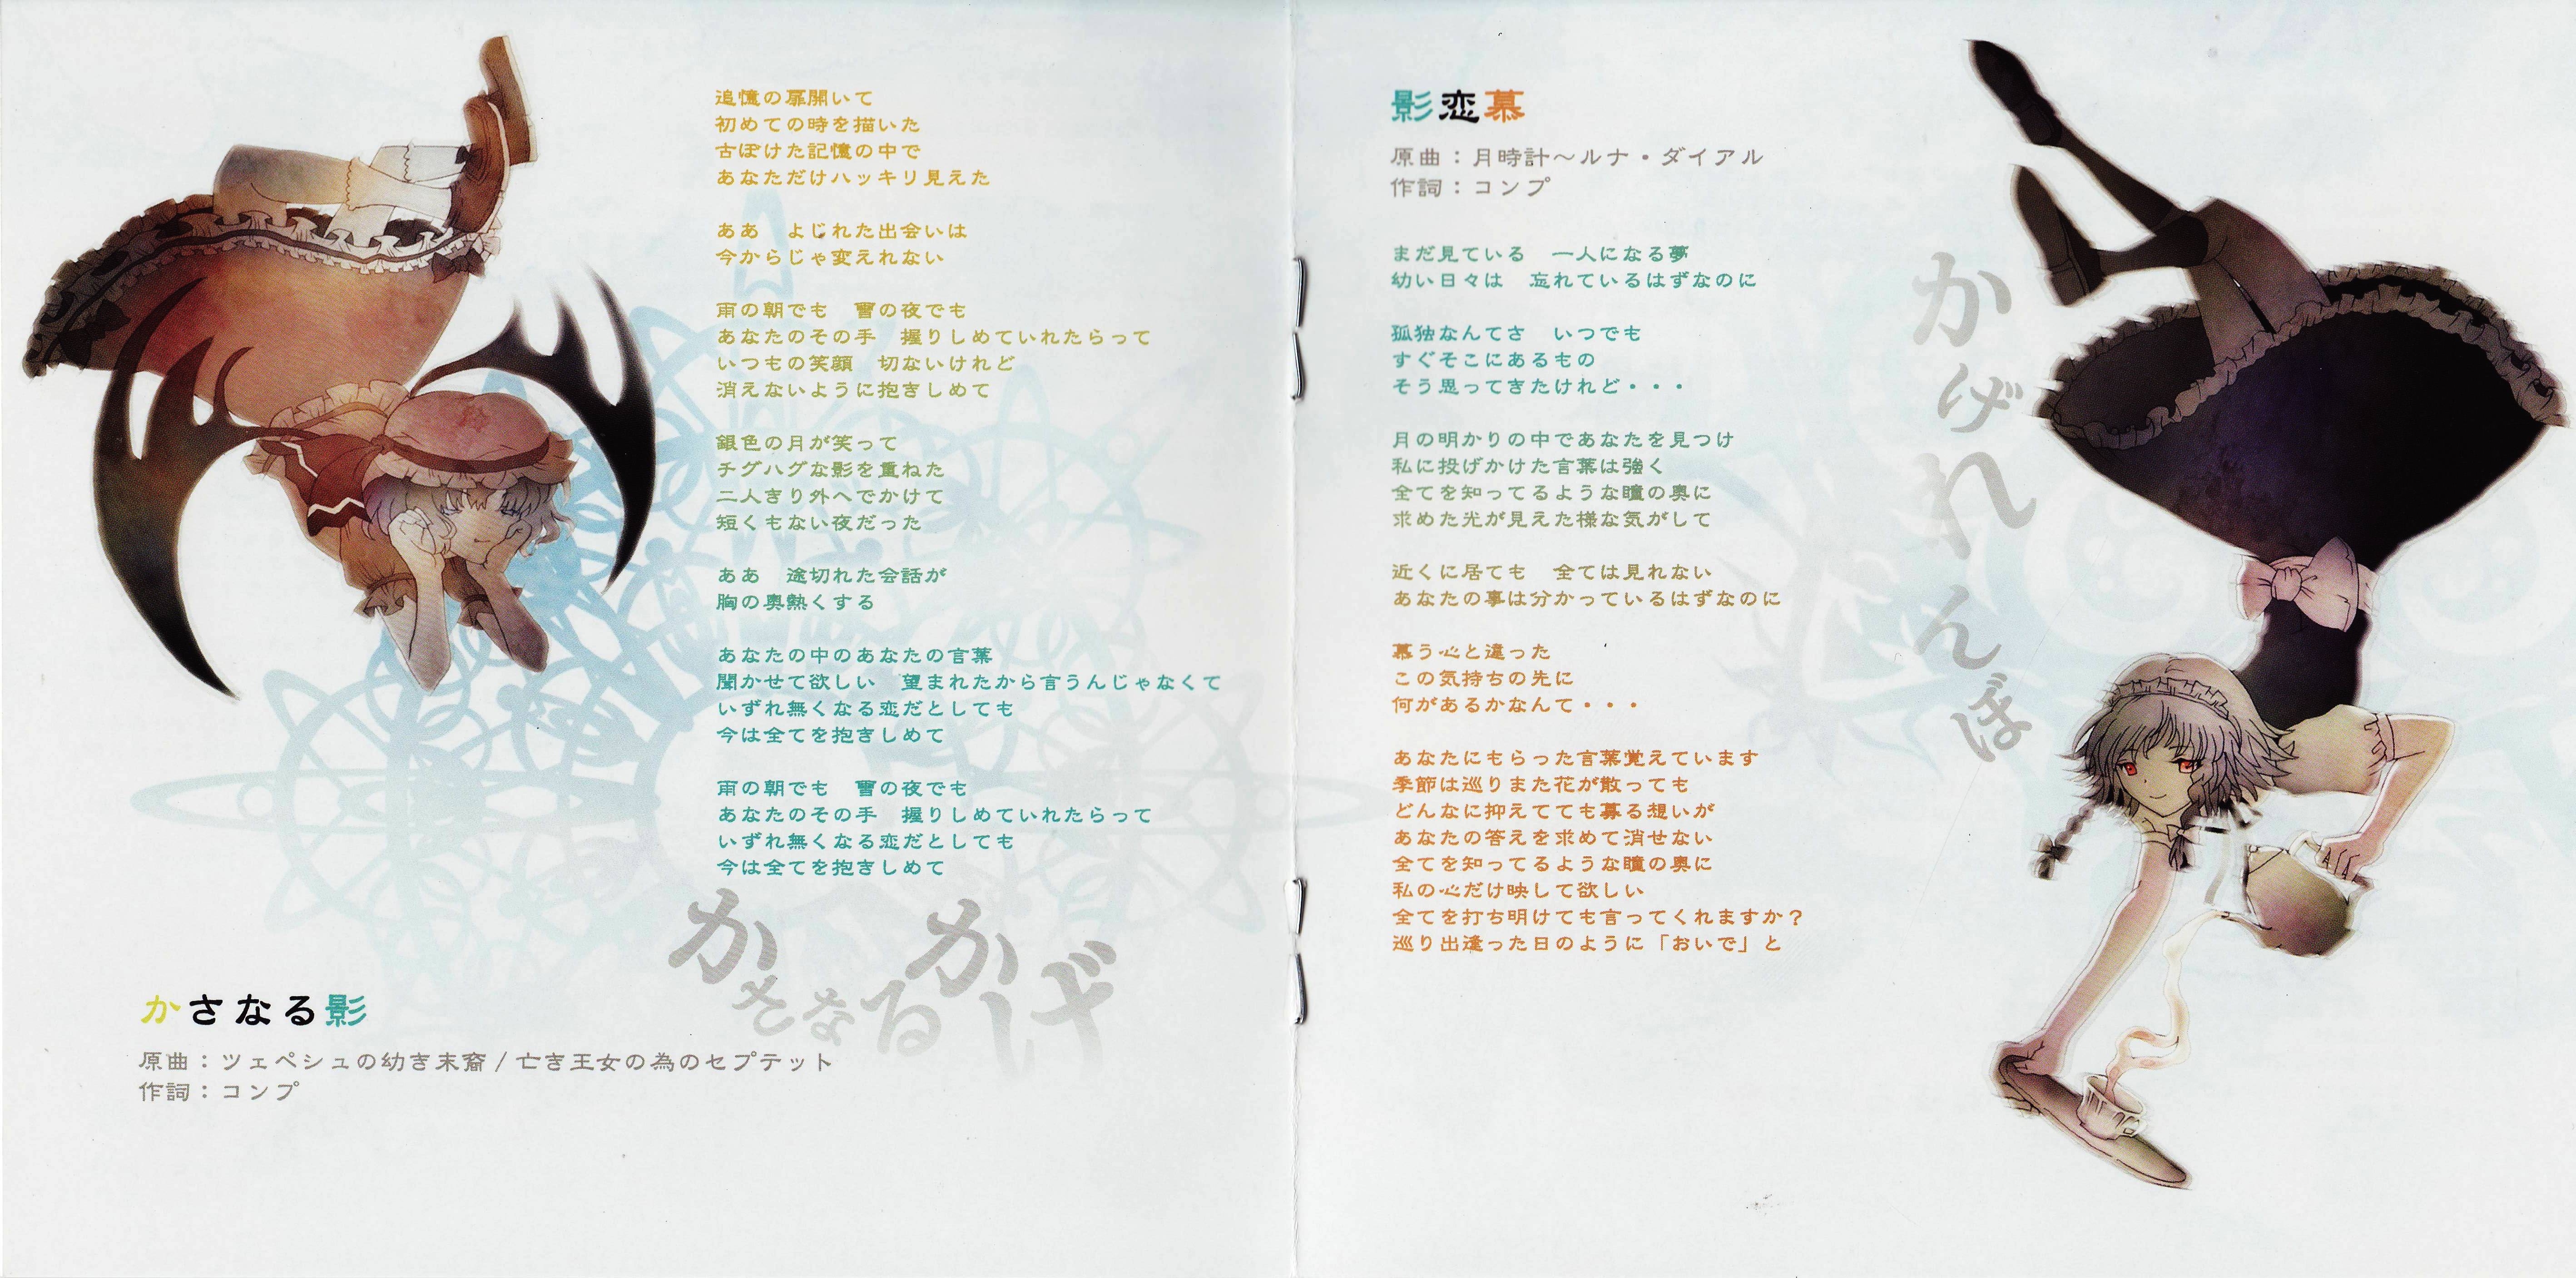 追憶の扉開いて
初めての時を描いた
古ぼけた記憶の中で
あなただけハッキリ見えた
ああ　よじれた出会いは
今からじゃ変えれない
雨の朝でも　雪の夜でも
あなたのその手　握りしめていれたらって
いつもの笑顔　切ないけれど
消えないように抱きしめて
銀色の月が笑って
チグハグな影を重ねた
二人きり外へでかけて
短くもない夜だった
ああ　途切れた会話が
胸の奥熱くする
あなたの中のあなたの言葉
聞かせて欲しい　望まれたから言うんじゃなくて
いずれ無くなる恋だとしても
今は全てを抱きしめて
雨の朝でも　雪の夜でも
あなたのその手　握りしめていれたらって
いずれ無くなる恋だとしても
今は全てを抱きしめて
かさなるかげ
かさなる影
原曲：ツェペシュの幼き末裔 / 亡き王女の為のセプテット
作詞：コンプ
影恋慕
原曲：月時計～ルナ・ダイアル
作詞：コンプ
まだ見ている　一人になる夢
幼い日々は　忘れているはずなのに
孤独なんてさ　いつでも
すぐそこにあるもの
そう思ってきたけれど・・・
月の明かりの中であなたを見つけ
私に投げかけた言葉は強く
全てを知ってるような瞳の奥に
求めた光が見えた様な気がして
近くに居ても　全ては見れない
あなたの事は分かっているはずなのに
慕う心と違った
この気持ちの先に
何があるかなんて・・・
あなたにもらった言葉覚えています
季節は巡りまた花が散っても
どんなに抑えてても募る想いが
あなたの答えを求めて消せない
全てを知ってるような瞳の奥に
私の心だけ映して欲しい
全てを打ち明けても言ってくれますか？
巡り出逢った日のように「おいで」と
かげれんぼ